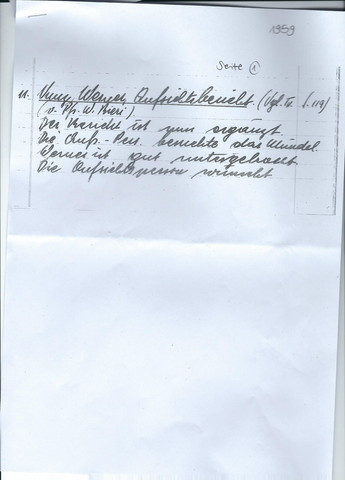 1959
Seite 1
11. Kunz Werner, Aufsichtsbericht. (Vgl. Ia S. 119)
(v. Pfr. W. Bieri)
Der Bericht ist nun ergänzt.
Die Aufs.-Pers. besuchte das Mündel.
Werner ist gut untergebracht.
Die Aufsichtsperson wünscht